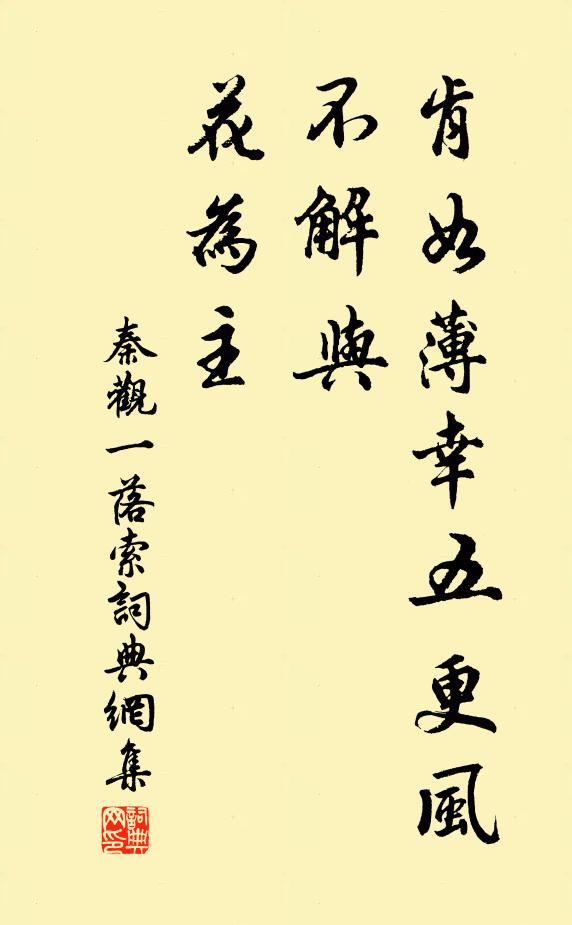 肯如薄幸五更風
不解與
花為主
秦觀一落索詞典網集
詞典網印